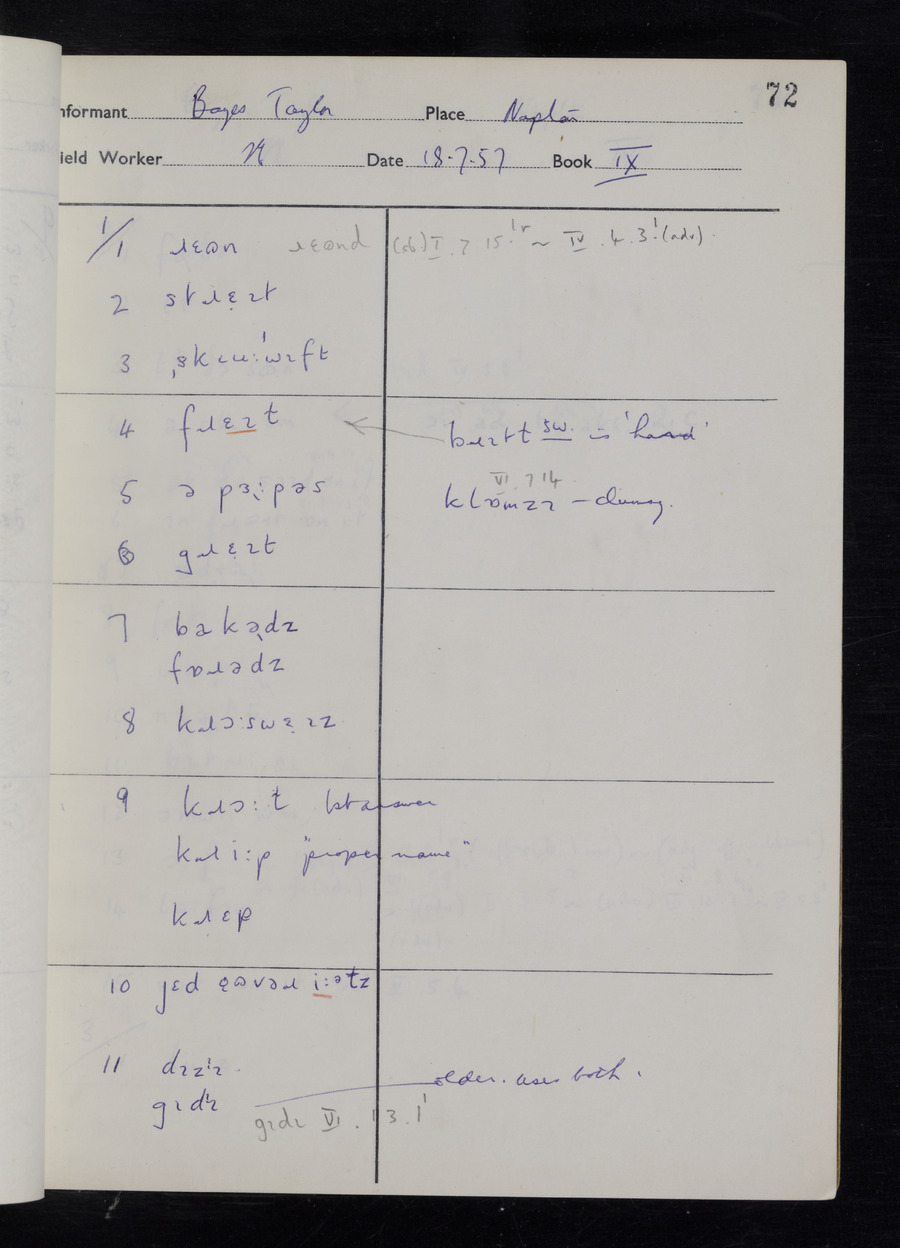 72
nformant Bayes Taylor Place Napton
ield Worker Date 18.7.57 Book IX
1/1 ɹɛɷn ɹɛɷnd (sb) I. 7 15.'r ~ IV .4.3! (adv)
2 stɹɛ̣ɪt
3
4 fɹɛɪt
bɹɪtt sw. is 'hard'
5 ə pɜ̣:pəs
VI.7 14
klɒmzɪ – clumsy.
6 gɹɛ̣ɪt
7 bakə̣dz
fɒɹədz
8 kɹɔ:swɛ̣ɪz
9 kɹɔ:ɫ 1st answer
kɹi:p "proper name"
kɹɛp
10 jɛd ɛɷvəɹ i:əɫz
11 dɪzɪ
gɪdɪ older. uses both.
gɪdɪ VI. 13.1'